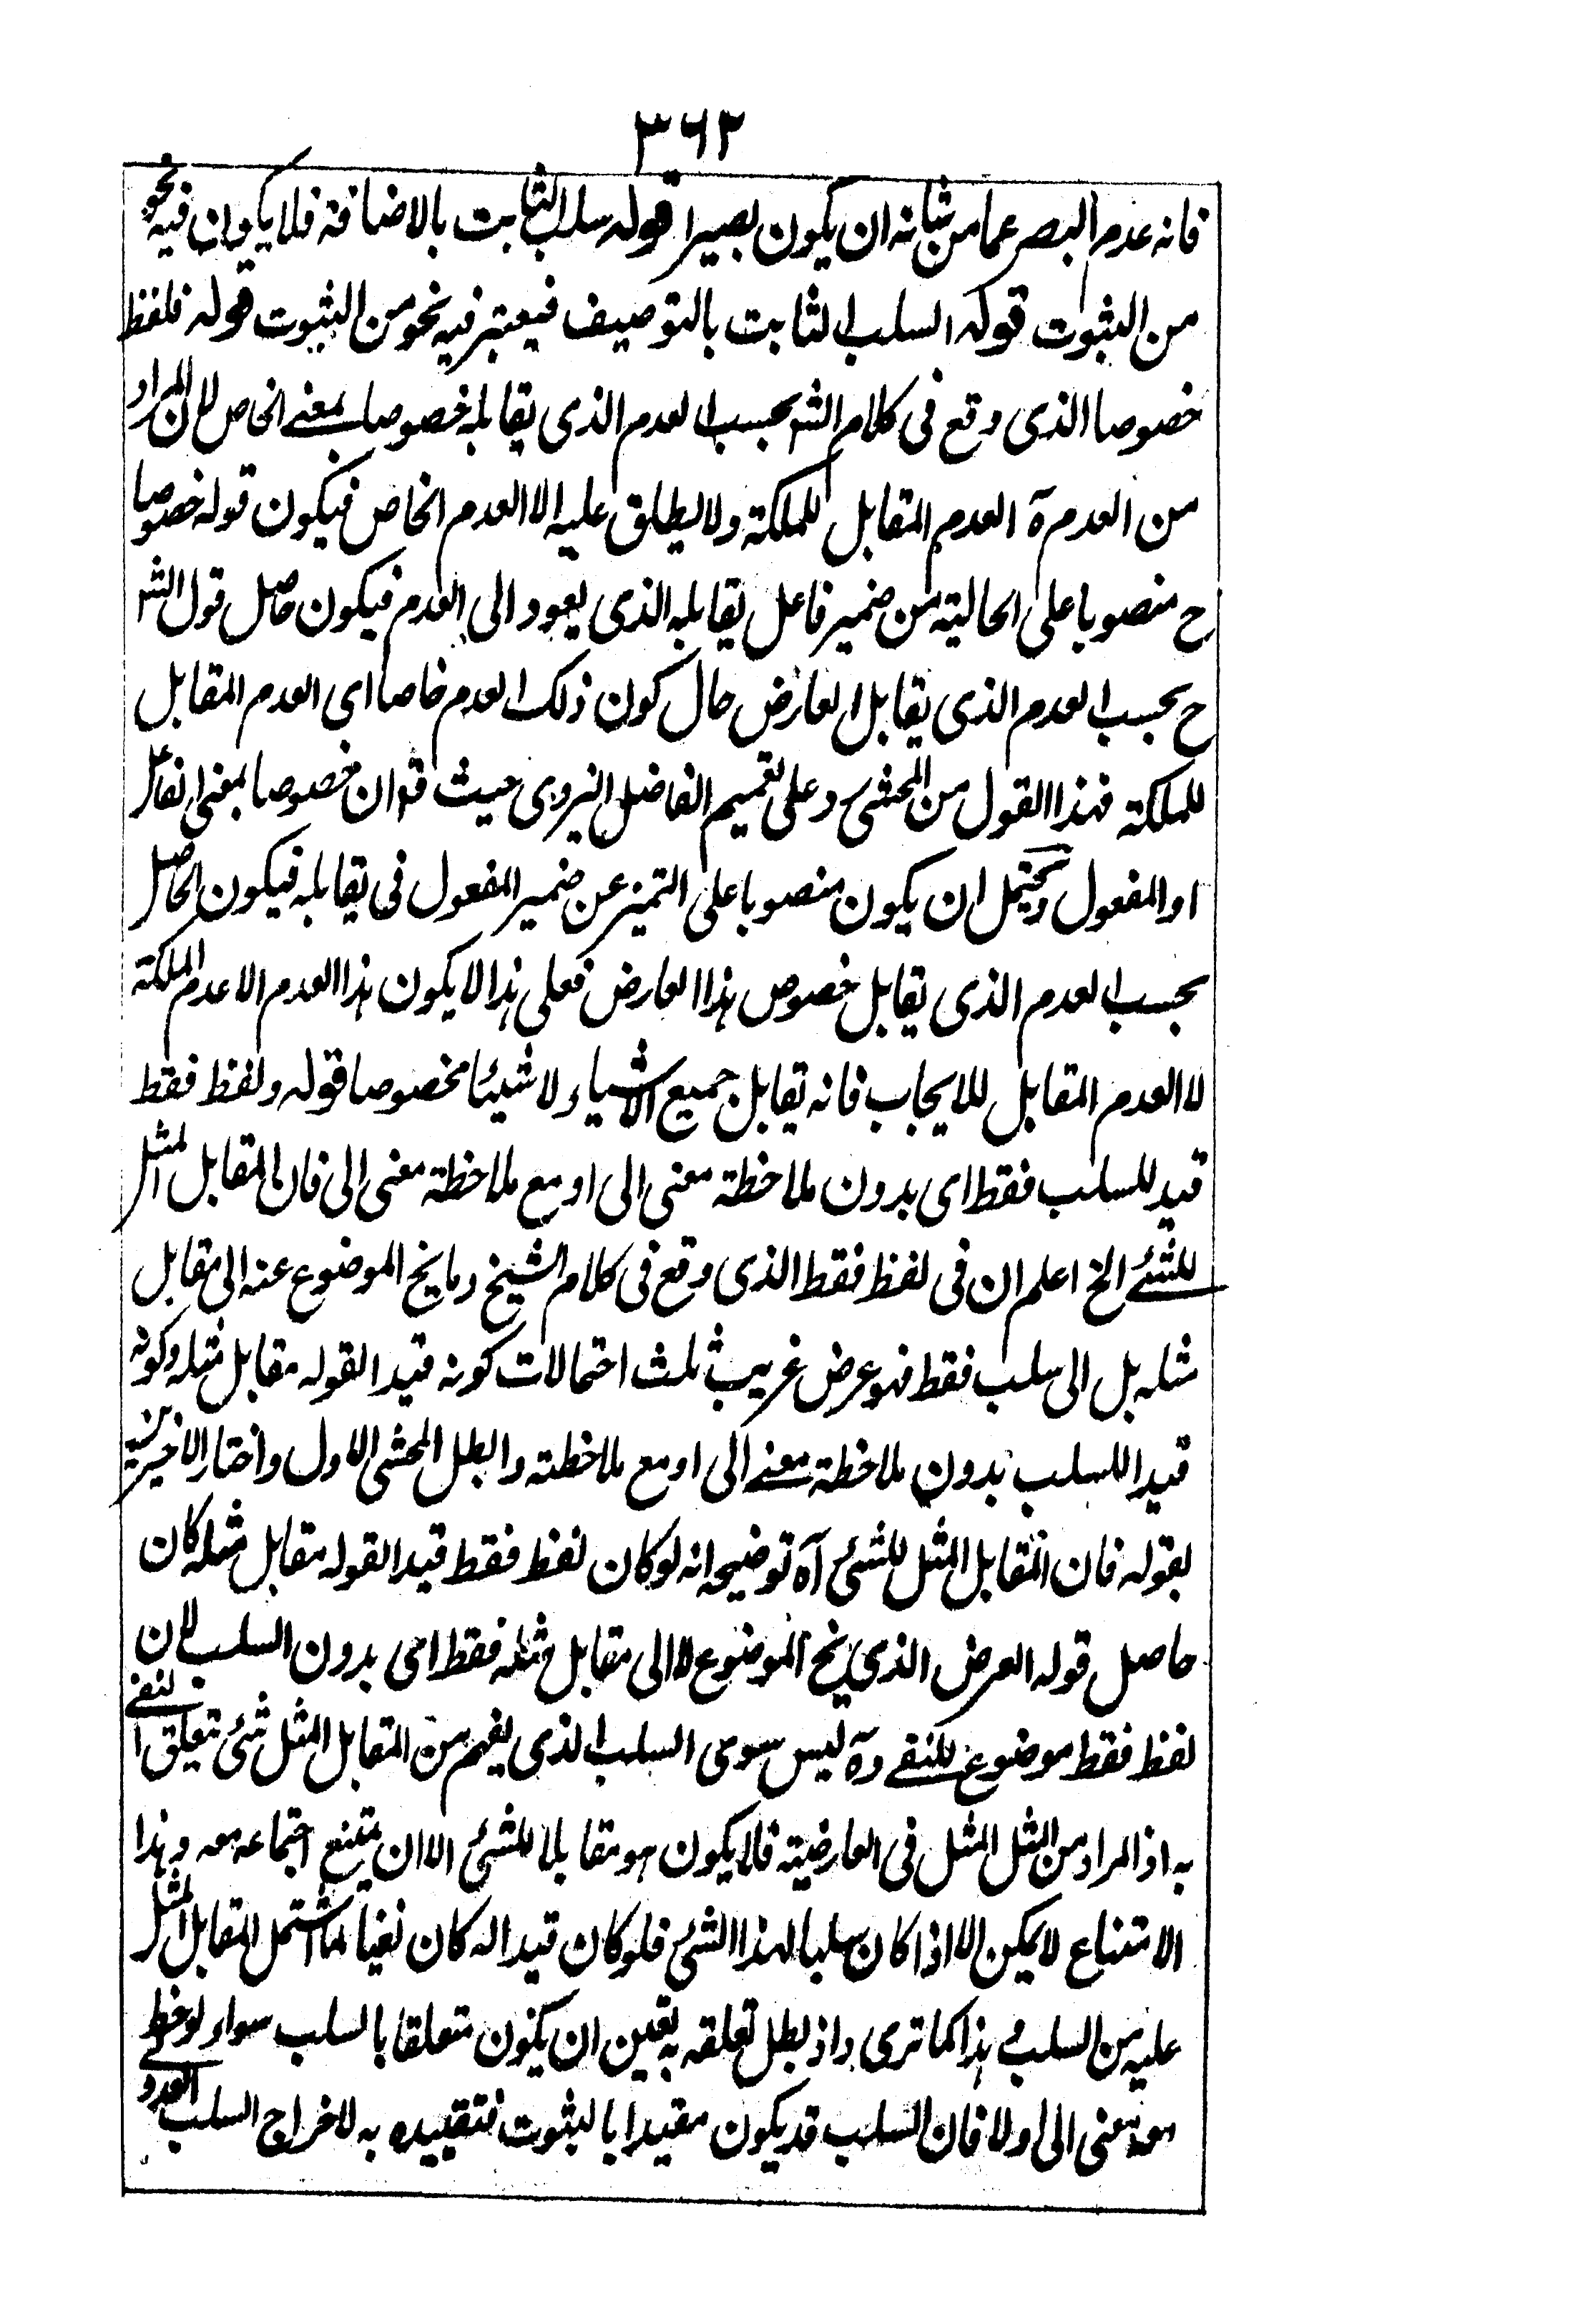 ٣٦٢
فانه عدم البصر عما من شانه ان يكون بصيرا قوله سلب الثابت بالاضافة فلا يكون فيه نحو
من الثبوت قوله السلب الثابت بالتوصيف فيعتبر فيه نحو من الثبوت قوله فلفظ
خصوصا الذى وقع فى كلام الشر بحسب العدم الذى يقابله خصوصا بمعنے الخاص لان المراد
من العدم آه العدم المقابل للملكة ولا يطلق عليه الا العدم الخاص فيكون قوله خصوصا
ح منصوبا على الحالية من ضمير فاعل يقابله الذى يعود الى العدم فيكون حاصل قول الشر
ح بحسب العدم الذى يقابل العارض حال كون ذلك العدم خاصا اى العدم المقابل
للملكة فهذا القول من المحشى وعلى تعميم الفاضل اليزدى حيث قه ان خصوصا بمعنى الفاعل
او المفعول ويحتمل ان يكون منصوبا على التميز عن ضمير المفعول فى يقابله فيكون الحاصل
بحسب العدم الذى يقابل خصوص هذا العارض فعلى هذا لا يكون هذا العدم الا عدم الملكة
لا العدم المقابل للايجاب فانه تقابل جميع الاشياء ولا شيئا مخصوصا قوله ولفظ فقط
قيد للسلب فقط اى بدون ملاحظة معنى الى او مع ملاحظة معنى الى فان المقابل المثل
للشئے الخ اعلم ان فى لفظ فقط الذى وقع فى كلام الشيخ وما يخ الموضوع عنه الى مقابل
مثله بل الى سلب فقط فهو عرض غريب ثلث احتمالات كونه قيدا لقوله مقابل مثله وكونه
قيدا للسلب بدون ملاحظة معنے الى او مع ملاحظته وابطل المحشى الاول واختار الاخيرين
بقوله فان المقابل المثل للشئ آه توضيحه انه لو كان لفظ فقط قيدا لقوله مقابل مثله كان
حاصل قوله العرض الذى يخ الموضوع لا الى مقابل مثله فقط اى بدون السلب لان
لفظ فقط موضوع للنفے وآه ليس سوى السلب الذى يفهم من المقابل المثل شئ تيعلق النفے
به اذ المراد من المثل المثل فى العارضية فلا يكون هو مقابلا للشئ الا ان يمتنع اجتماعه معه وهذا
الامتناع لا يمكن الا اذا كان سلبا لهذا الشئ فلو كان قيدا له كان نفيا لما اشتمل المقابل المثل
عليه من السلب و هذا كما ترى واذ بطل تعلقه به تعين ان يكون متعلقا بالسلب سواء لوحظ
معه معنى الى اولا فان السلب قد يكون مقيدا بالثبوت فتقييده به لاخراج السلب العدولے